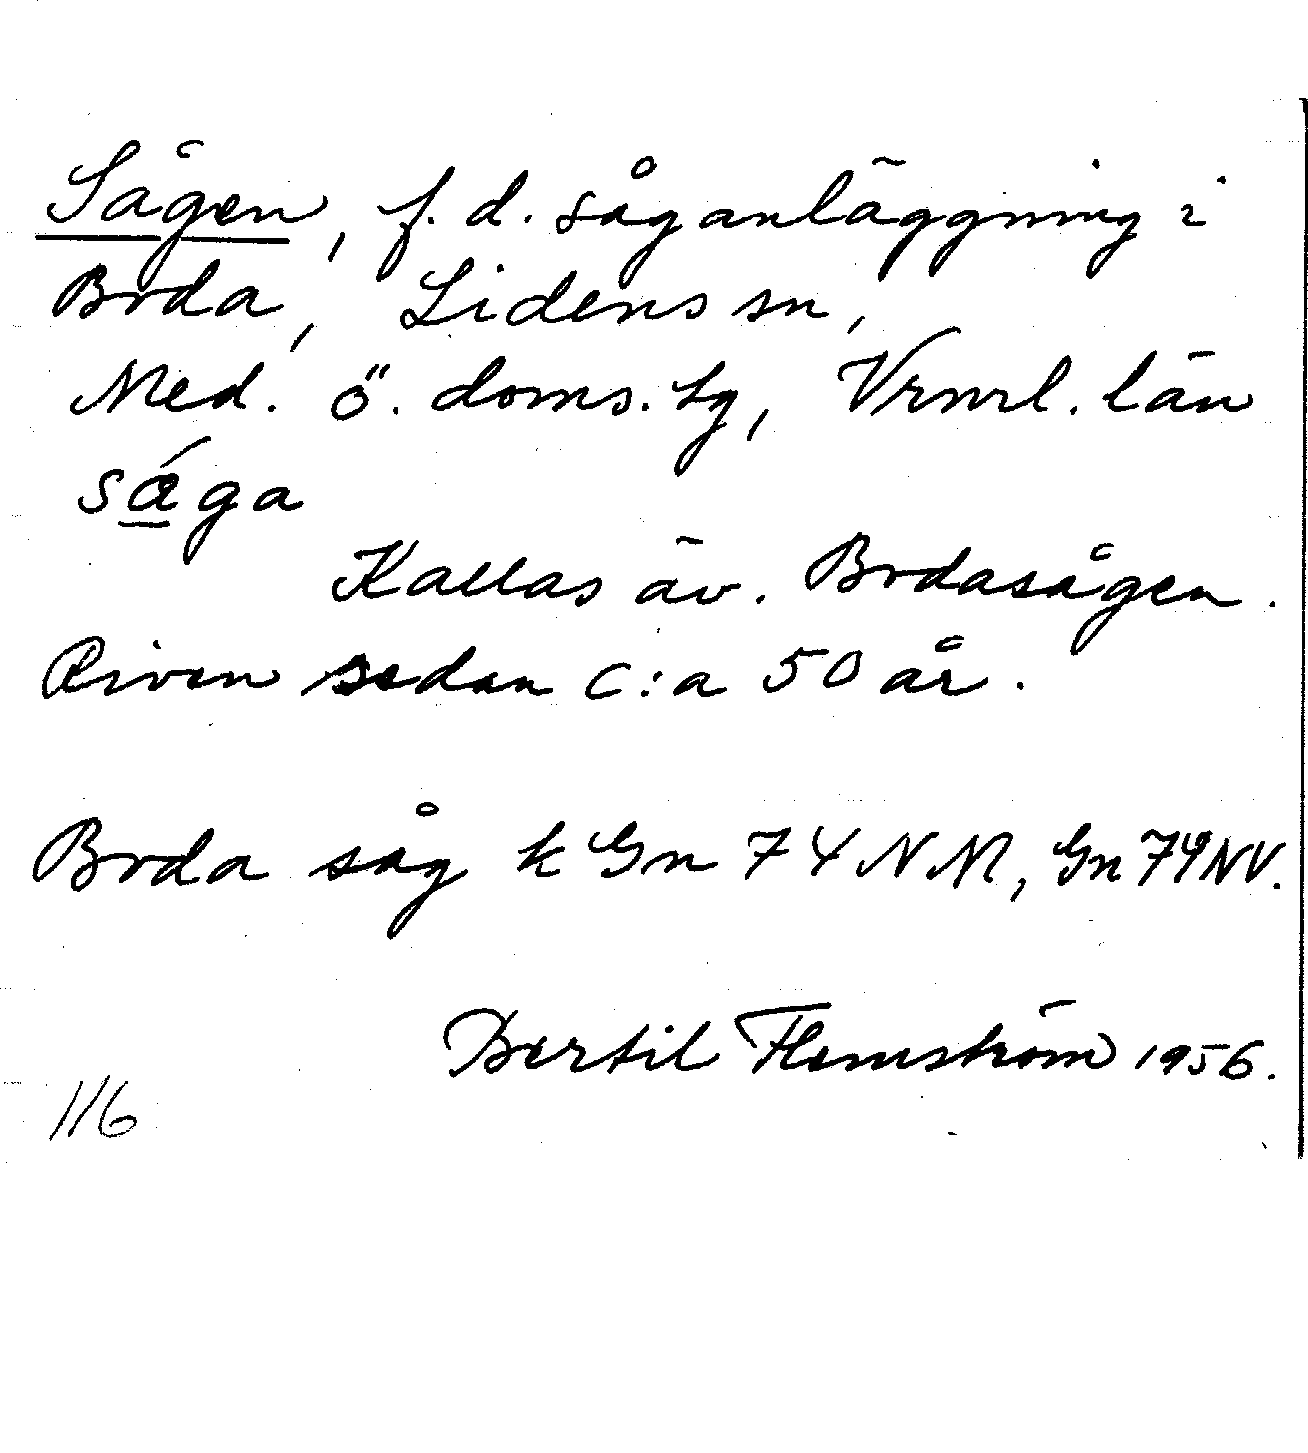 Sågen, f.d. såganläggning i
Boda, Lidens sn,
Med. ö. doms. tg, Vrnrl. län
sǻga
Kallas äv. Bodasågen.
Riven sedan c:a 50 år.
Boda såg k Gn 74 NM, Gn 79 NV.
Bertil Flemström 1956.
116